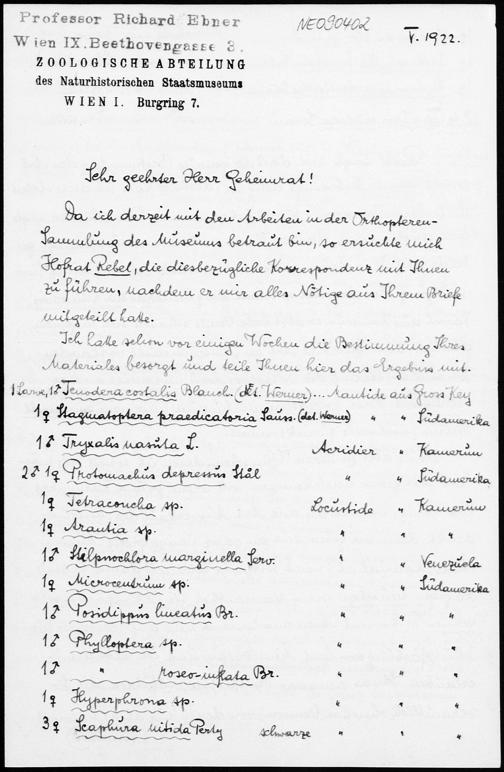 Professor Richard Ebner
Wien IX. Beethovengasse 3.
NE090402
V. 1922.
ZOOLOGISCHE ABTEILUNG
des Naturhistorischen Staatsmuseums
WIEN I. Burgring 7.
Sehr geehrter Herr Geheimrat!
Da ich derzeit mit den Arbeiten in der Orthopteren-
Sammlung des Museums betraut bin, so ersuchte mich
Hofrat Rebel, die diesbezügliche Korrespondenz mit Ihnen
zu führen, nachdem er mir alles Nötige aus Ihrem Briefe
mitgeteilt hatte.
Ich hatte schon vor einigen Wochen die Bestimmung Ihres
Materiales besorgt und teile Ihnen hier das Ergebnis mit.
1 Larve, 1♂ Tenodera costalis Blanch. (det. Werner) ... Mantide aus Gross Key
1♀ Stagmatoptera praedicatoria Sauss. (det. Werner) " " Südamerika
1♂ Tryxalis nasuta L. Acridier " Kamerun
2♂ 1♀ Protomachus depressus Stål " " Südamerika
1♀ Tetraconcha sp. Locustide " Kamerun
1♀ Arantia sp. " " "
1♂ Stilpnochlora marginella Serv. " " Venezuela
1♀ Microcentrum sp. " " Südamerika
1♂ Posidippus lineatus Br. " " "
1♂ Phylloptera sp. " " "
1♂ " roseo-inflata Br. " " "
1♀ Hyperphrona sp. " " "
3♀ Scaphura nitida Perty schwarze " " "